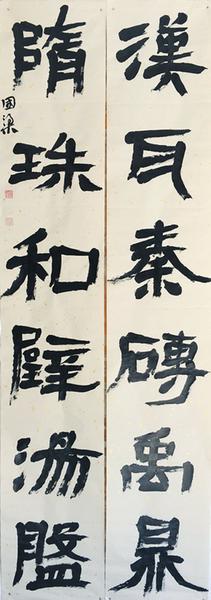 漢瓦秦磚禹鼎
隋珠和璧湯盤
國梁